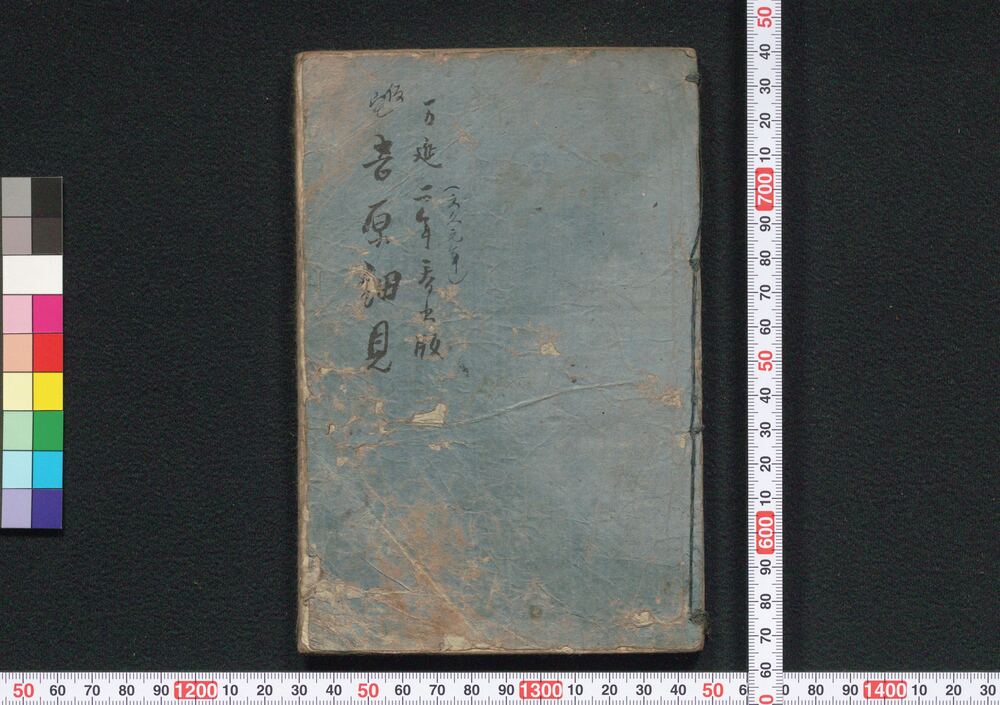 万延二年春出版
(文久元年)
吉原細見
50
40
30
20
10
700
90
80
70
60
50
40
30
20
10
600
90
80
70
60
50 60 70 80 90 1200 10 20 30 40 50 60 70 80 90 1300 10 20 30 40 50 6 0 80 90 1400 10 20 30